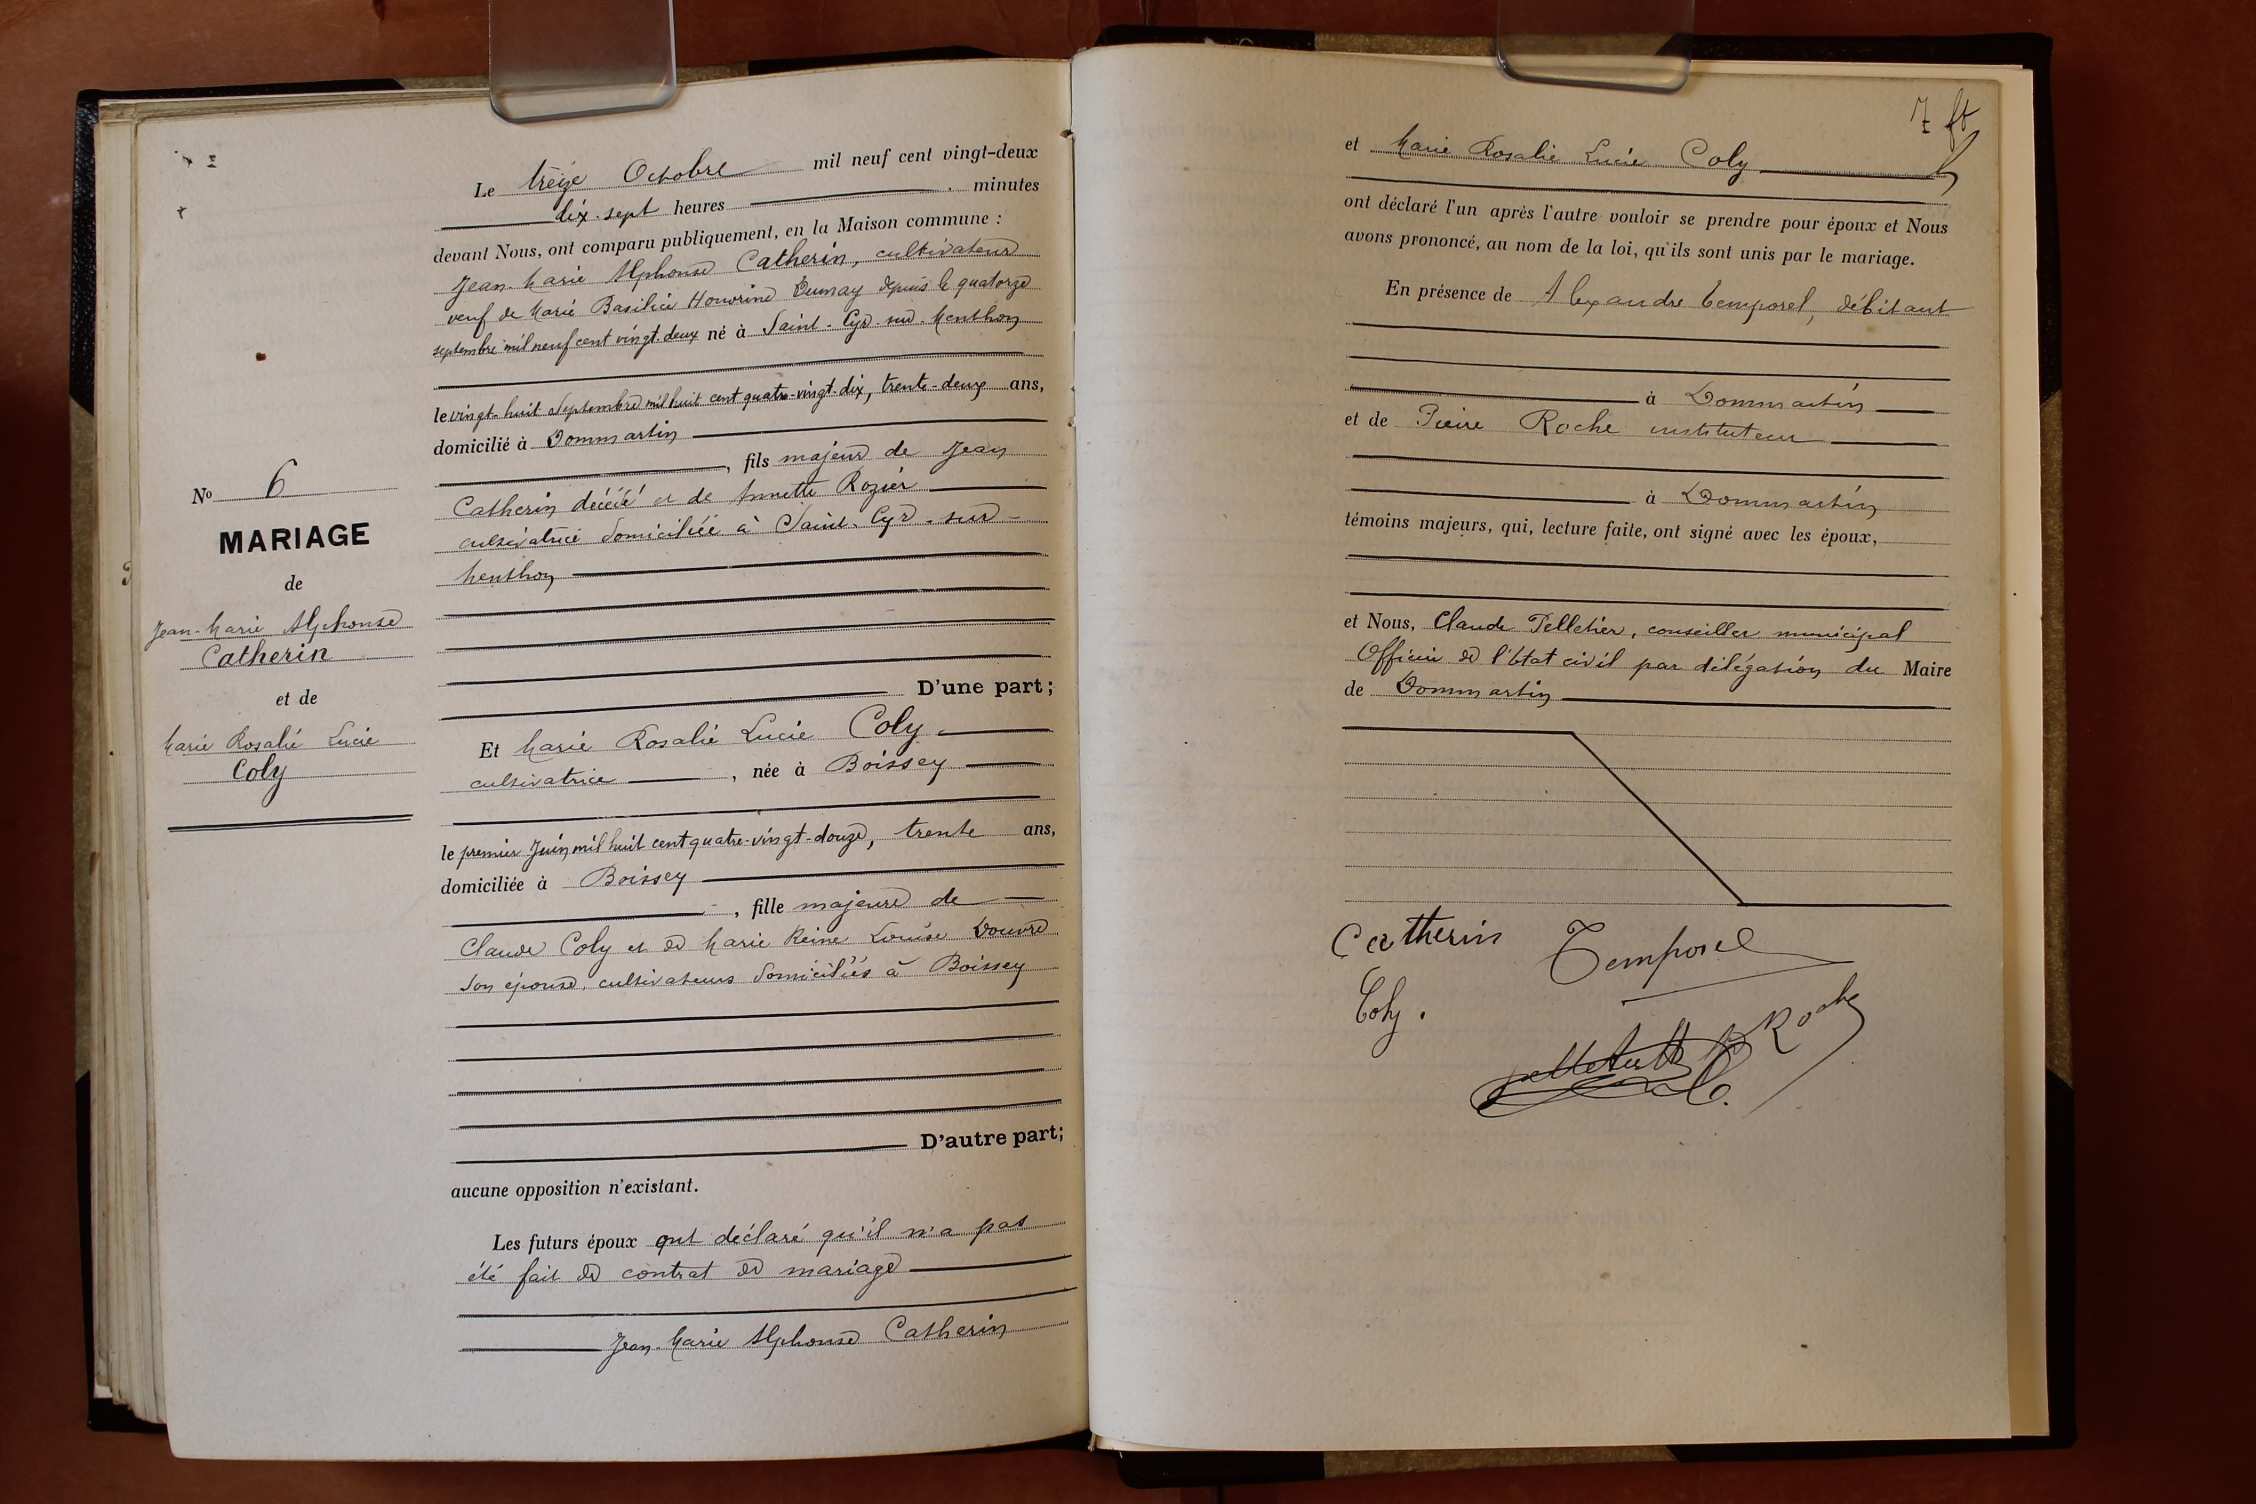 Le treize Octobre mil neuf cent vingt-deux
dix-sept heures minutes
devant Nous, ont comparu publiquement, en la Maison commune :
Jean-Marie Alphonse Catherin, cultivateur
veuf de Marie Basilice Honorine depuis le quatorze
septembre mil neuf cent vingt-deux né à Saint-Cyr-sur-Menthon
le vingt-huit Septembre mil huit cent quatre-vingt-dix, trente-deux ans,
domicilié à Dommartin
, fils majeur de Jean
Catherin décédé et de Annette Rozier
cultivatrice domiciliée à Saint-Cyr-sur-
Menthon
D'une part ;
Et Marie Rosalie Lucie Coly
cultivatrice , née à Boissey
le premier Juin mil huit cent quatre-vingt-douze, trente ans,
domiciliée à Boissey
, fille majeure de
Claude Coly et de Marie Reine Louise Douvre
son épouse, cultivateurs domiciliés à Boissey
D'autre part;
aucune opposition n'existant.
Les futurs époux ont déclaré qu'il n'a pas
été fait de contrat de mariage
Jean-Marie Alphonse Catherin
No 6
MARIAGE
de
Jean-Marie Alphonse
Catherin
et de
Marie Rosalie Lucie
Coly
7
et Marie Rosalie Lucie Coly
ont déclaré l'un après l'autre vouloir se prendre pour époux et Nous
avons prononcé, au nom de la loi, qu'ils sont unis par le mariage.
En présence de Alexandre Temporel, débitant
à Dommartin
et de Pierre Roche instituteur
à Dommartin
témoins majeurs, qui, lecture faite, ont signé avec les époux,
et Nous, Claude Pelletier, conseiller municipal
Officier de l'Etat civil par délégation du Maire
de Dommartin
Catherin Temporel
Coly.
Roche